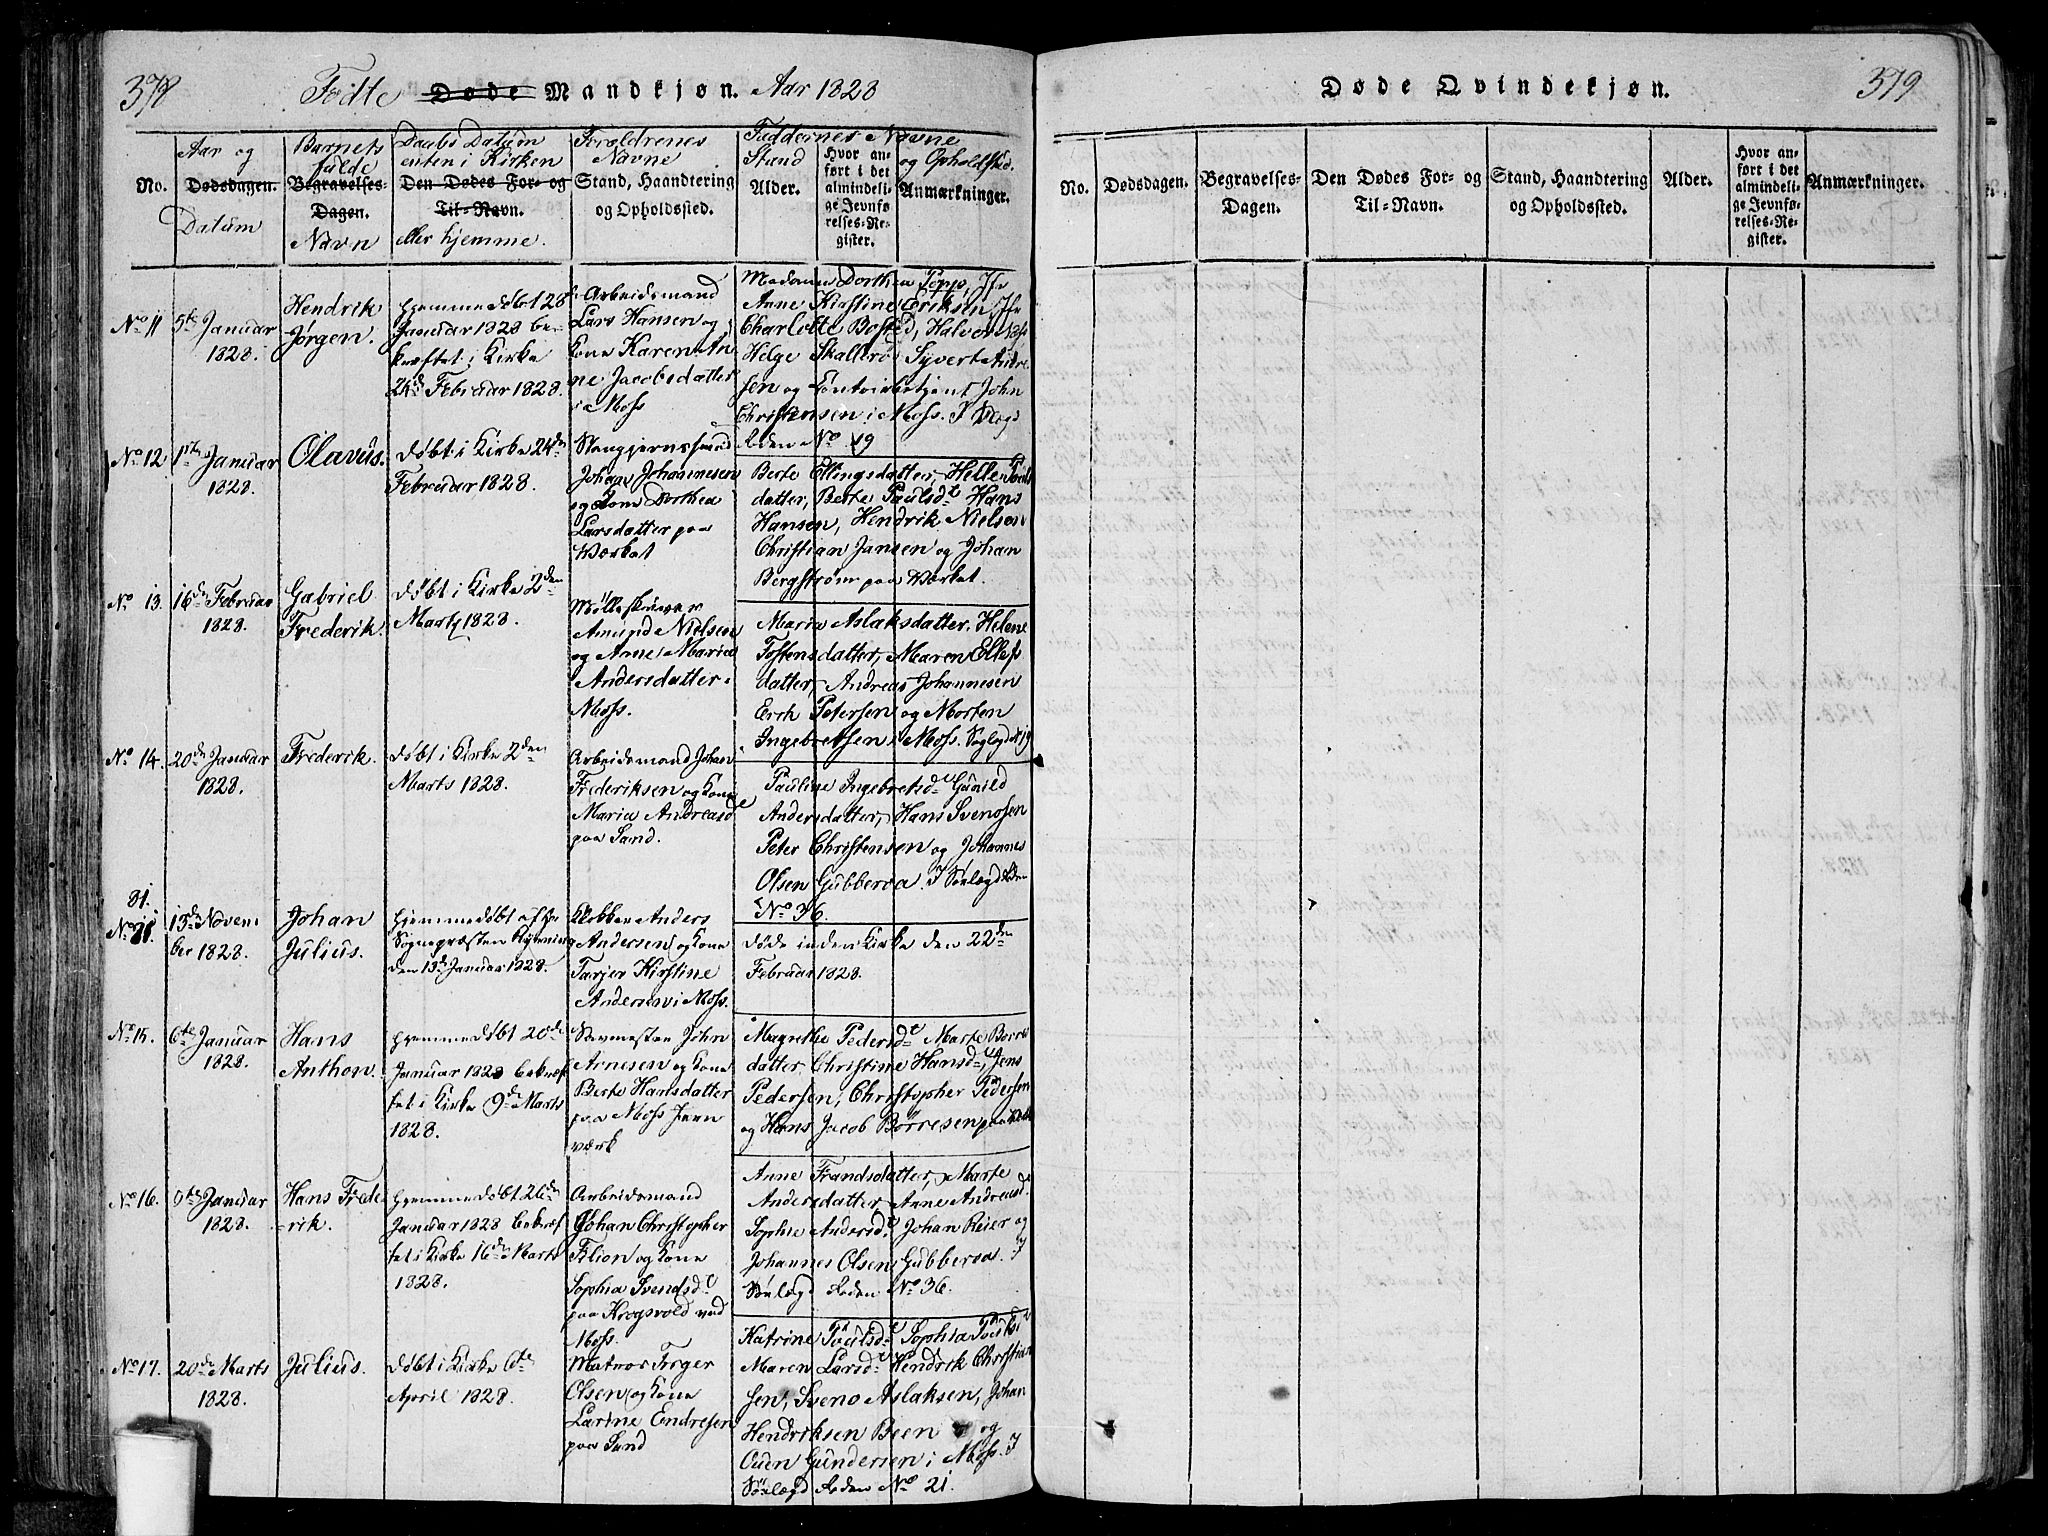 378
Fødte Døde Mandkjøn. Aar 1828
No.
Aar og
Dødsdagen.
Datum
Barnets
fulde
Begravelses-
Dagen.
Navn
Daabs Datum
enten i Kirken
Den Dødes For- og
Til-Navn.
eller hjemme.
Forældrenes
Navne
Stand, Haandtering
og Opholdssted.
Faddernes Navne
Stand
Alder.
Hvor an-
ført i det
almindeli-
ge Jevnfø-
relses-Re-
gister.
og Opholdsted.
Anmærkninger.
No 11
5te Januar
1828.
Hendrik
Jørgen.
hjemmedøbt 28
Januar 1828 be-
kræftet i Kirke
24de Februar 1828.
Arbeidsmand
Lars Hansen og
Kone Karen An
ne Jacobsdatter
i Moss
Madame Dorthea Popp, Jfr
Anne Kirstine Eriksen, Jfr
Charlotte Bosted, Halvor
Helge Skallerø Syvert Andre
sen og Contoirbetjent John
Christensen i Moss.
No 12
1ste Januar
1828.
Olavus.
Døbt i Kirke 24de
Februar 1828.
Stangjernssmed
Johan Johannesen
og Kone Dorthea
Larsdatter paa
Værket
Alden No 19
Berte Ellingsdatter, Helle Povels
datter, Berte Paulsdt Hans
Hansen, Hendrik Nielsen
Christian Jansen og Johan
Bergstrøm paa Værket.
No 13.
16de Februar
1828.
Gabriel
Frederik.
Døbt i Kirke 2den
Marty 1828.
Mølleskriver
Amund Nielsen
og Anne Maria
Andersdatter i
Moss.
Maria Aslaksdatter, Helene
Tostensdatter, Maren Ellefs
datter, Andreas Johannesen
Erch Petersen og Morten
Ingebretsen i Moss.
No 14.
20de Januar
1828.
Frederik.
Døbt i Kirke 2den
Marts 1828.
Arbeidsmand Johan
Frederiksen og Kone
Maria Andreasd
paa Sand.
Pauline Ingebretsdt Gunild
Andersdatter, Hans Svendsen
Peter Christensen og Johannes
Olsen Gubberoa.
No 36.
31.
13de Novem
ber 1828.
Johan
Julius.
hjemmedøbt af
Sognepræsten
den 13de Januar 1828.
Klokker Anders
Andersen og Kone
Tarjer Kirstine
Andersen i Moss.
Døde inden Kirke den 22den
Februar 1828.
No 15.
6te Januar
1828.
Hans
Anthon.
hjemmedøbt 20de
Januar 1828 bekræf
tet i Kirke 9de Marts
1828.
John
Arnesen og Kone
Berte Hansdatter
paa Moss Jern
værk
Magrethe Pedersdt Marte
datter Christine Hansdt, Jens
Pedersen, Christopher Pedersen
og Hans Jacob Børresen paa
No 16.
9te Januar
1828.
Hans Frede
rik.
hjemmedøbt 26de
Januar 1828 bekræf
tet i Kirke 16de Marts
1828.
Arbeidsmand
Johan Christopher
Filion og Kone
Sophia Svendsdt
paa Krogsvold ved
Moss.
Anne Frandsdatter, Marte
Andersdatter, Anne Andreasdt
Sophie Andersdt Johan Reier og
Johannes Olsen Gubberoa. I
Sølægd Alden No 36.
No 17.
20de Marts
1828.
Julius.
Døbt i Kirke 6te
April 1828.
Matros Torger
Olsen og Kone
Larine Endresen
paa Sand
Katrine Povelsdt Sophia Povels
Maren Larsdt Hendrik Christian
sen, Sveno Aslaksen, Johan
Hendriksen Been og
Ouen Gundersen i Moss. I
Sølægd Alden No 21.
Døde Qvindekjøn.
379
No.
Dødsdagen.
Begravelses-
Dagen.
Den Dødes For- og
Til-Navn.
Stand, Haandtering
og Opholdssted.
Alder.
Hvor an-
ført i det
almindeli-
ge Jevnfø-
relses-Re-
gister.
Anmærkninger.